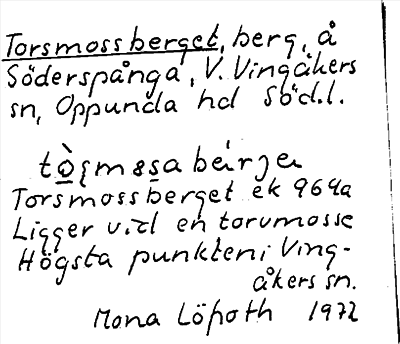 Torsmossberget, berg, å
Söderspånga, V. Vingåkers
sn, Oppunda hd Söd.l.
Torsmossberget ek 964a
Ligger vid en torvmosse
Högsta punkten i Ving-
åkers sn.
Mona Löfroth 1972